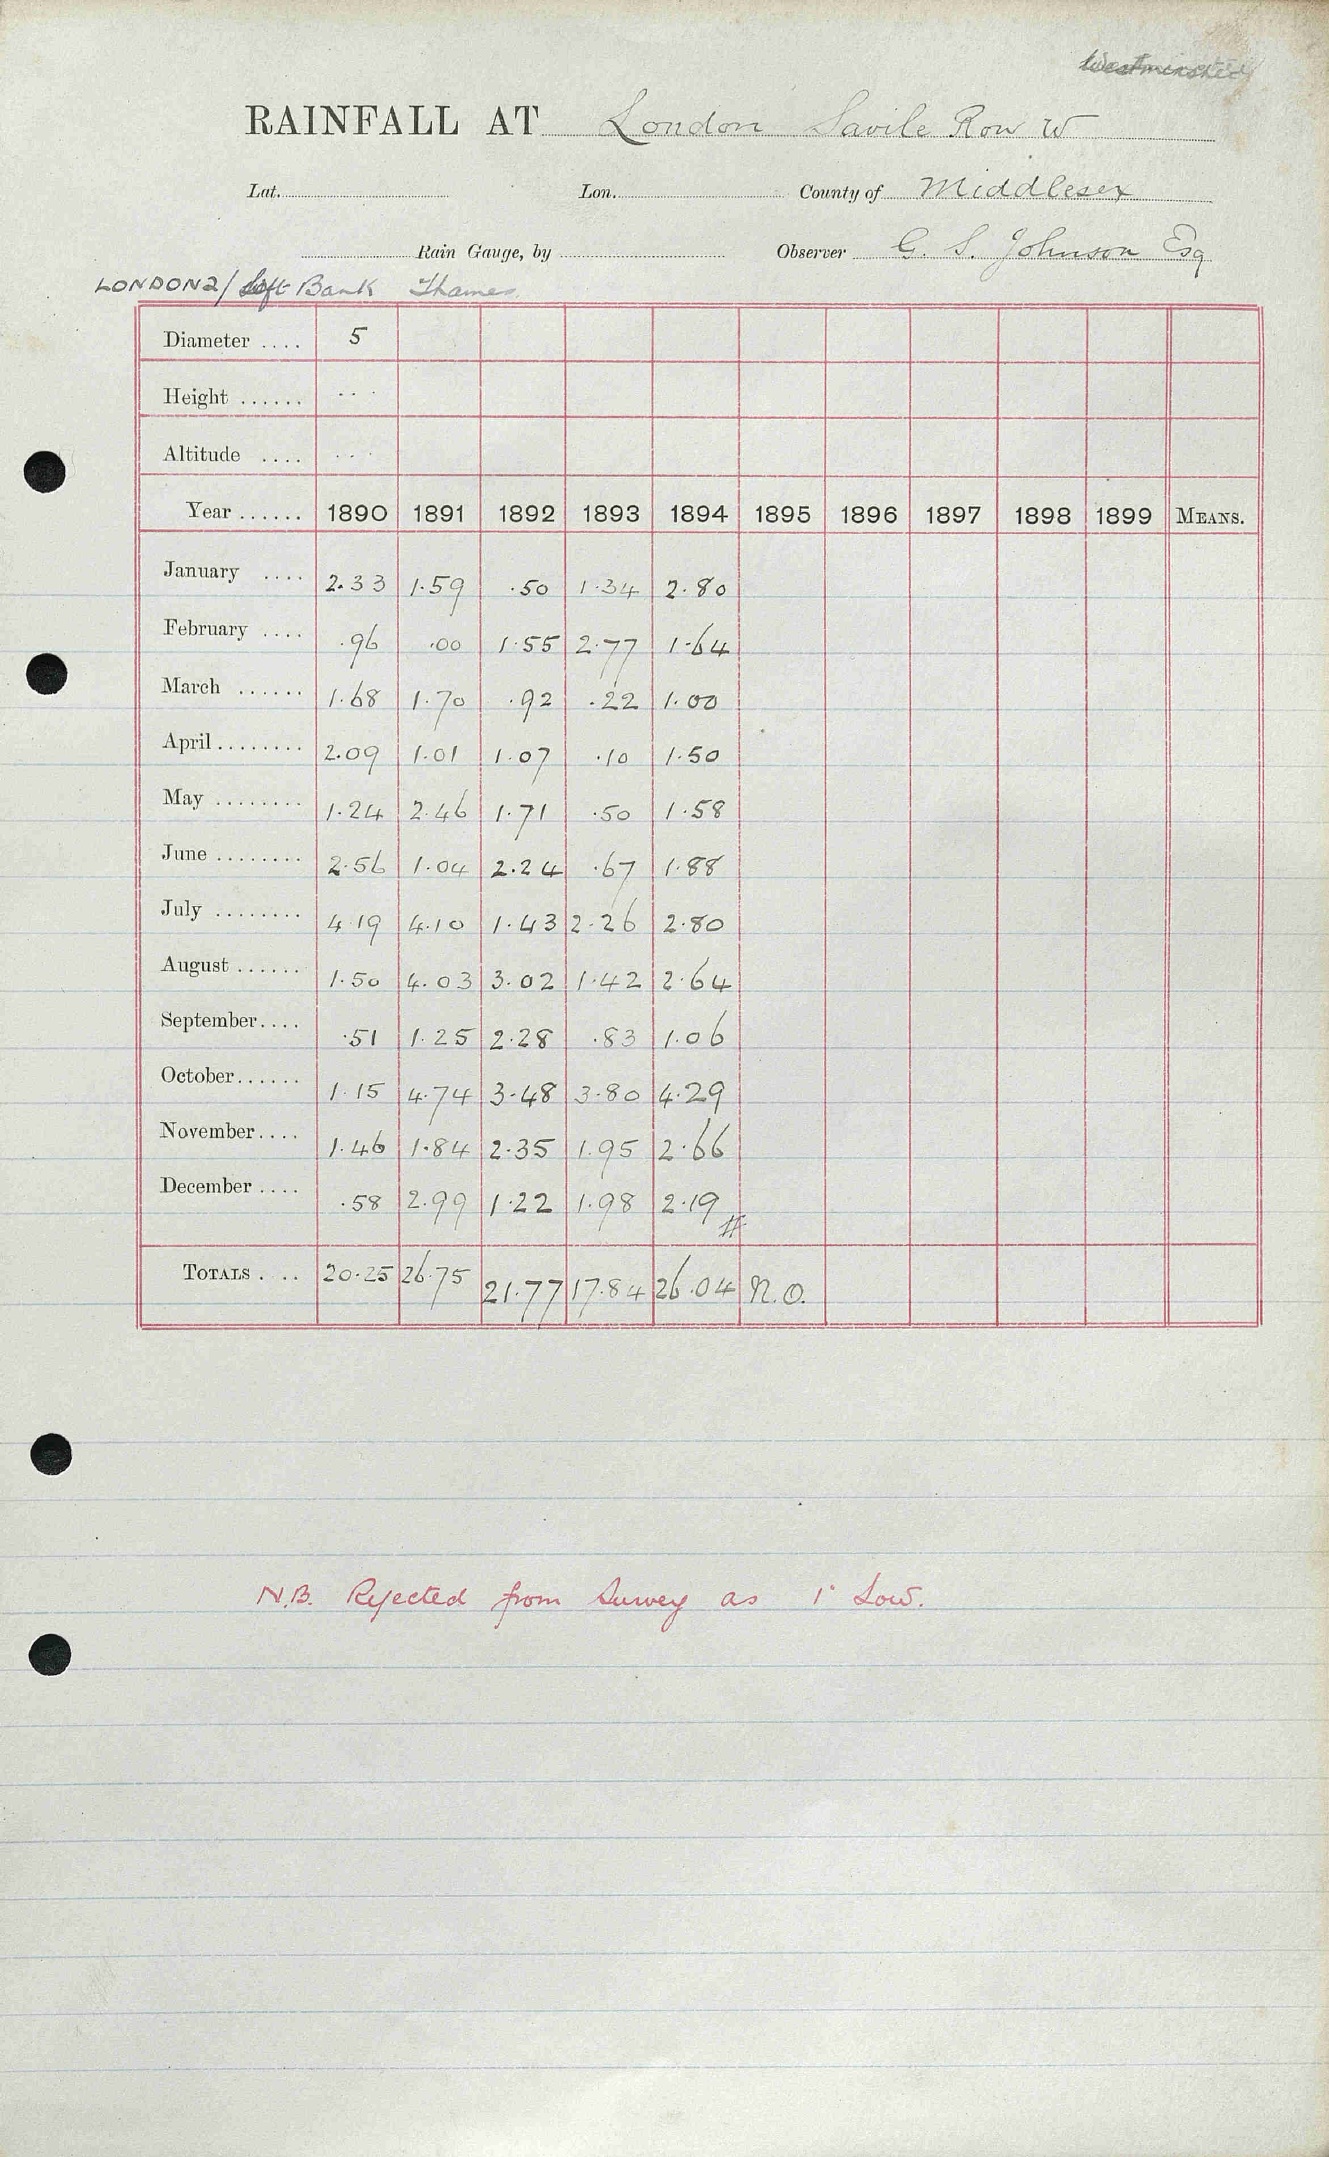 Westminster
RAINFALL AT London Savile Row W
Lat. Lon. County of Middlesex
Rain Gauge, by Observer G. S. Johnson Esq
LONDON 2/ Left Bank Thames
Diameter .... 5
Height ...... ...
Altitude .... ...
Year ...... 1890 1891 1892 1893 1894 1895 1896 1897 1898 1899 MEANS.
January .... 2.33 1.59 .50 1.34 2.80
February .... .96 .00 1.55 2.77 1.64
March ...... 1.68 1.70 .92 .22 1.00
April ........ 2.09 1.01 1.07 .10 1.50
May ........ 1.24 2.46 1.71 .50 1.58
June ........ 2.56 1.04 2.24 .67 1.88
July ........ 4.19 4.10 1.43 2.26 2.80
August ...... 1.50 4.03 3.02 1.42 2.64
September.... .51 1.25 2.28 .83 1.06
October...... 1.15 4.74 3.48 3.80 4.29
November.... 1.46 1.84 2.35 1.95 2.66
December .... .58 2.99 1.22 1.98 2.19
TOTALS . .. 20.25 26.75 21.77 17.84 26.04 N.O.
N.B. Rejected from Survey as 1" Low.